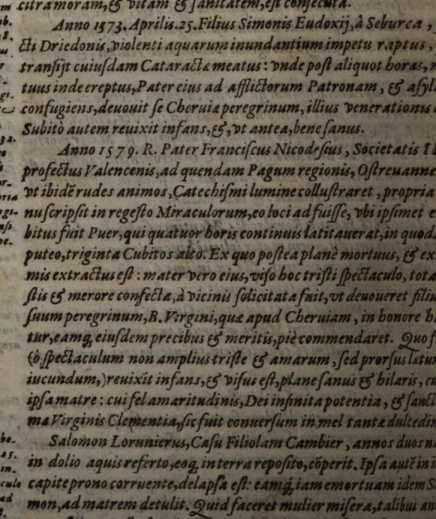 citra moram, & vitam & sanitatem, est consecuta.
Anno 1573. Aprilis. 25. Filius Simonis Eudoxij, à Seburca,
cti Driedonis, violenti aquarum inundantium impetu raptus,
transijt cuiusdam Cataractæ meatus: vnde post aliquot horas,
tuus inde ereptus, Pater eius ad afflictorum Patronam, & asyl
confugiens, deuouit se Cheruiæ peregrinum, illius venerationis
Subitò autem reuixit infans, &, vt antea, bene sanus.
Anno 1579. R. Pater Franciscus Nicodesius, Societatis I
profectus Valencenis, ad quendam Pagum regionis, Ostreuanne
vt ibidẽ rudes animos, Catechismi lumine collustraret, propria
nuscripsit in regesto Miraculorum, eo loci adfuisse, vbi ipsimet e
bitus fuit Puer, qui quatuor horis continuis latitauerat, in quod
puteo, triginta Cubitos alto. Ex quo postea planè mortuus, & ex
mis extractus est: mater verò eius, viso hoc tristi spectaculo, tota
stis & merore confecta, à vicinis solicitata fuit, vt deuoueret filiu
suum peregrinum, B. Virgini, quæ apud Cheruiam, in honore ha
tur, eamq, eiusdem precibus & meritis, piè commendaret. Quo f
(ô spectaculum non amplius triste & amarum, sed prorsus latum
iucundum,) reuixit infans, & visus est, plane sanus & hilaris, cu
ipsa matre: cui fel amaritudinis, Dei infinita potentia, & sancti
ma Virginis Clementia, sic fuit conuersum in mel tantæ dulcedin
Salomon Lorunierus, Casu Filiolam Cambier, annos duos na
in dolio aquis referto, eoq, in terra reposito, cõperit. Ipsa autẽ in
capite prono corruente, delapsa est: eamq, iam emortuam idem Sa
mon, ad matrem detulit. Quid faceret mulier misera, talibus an